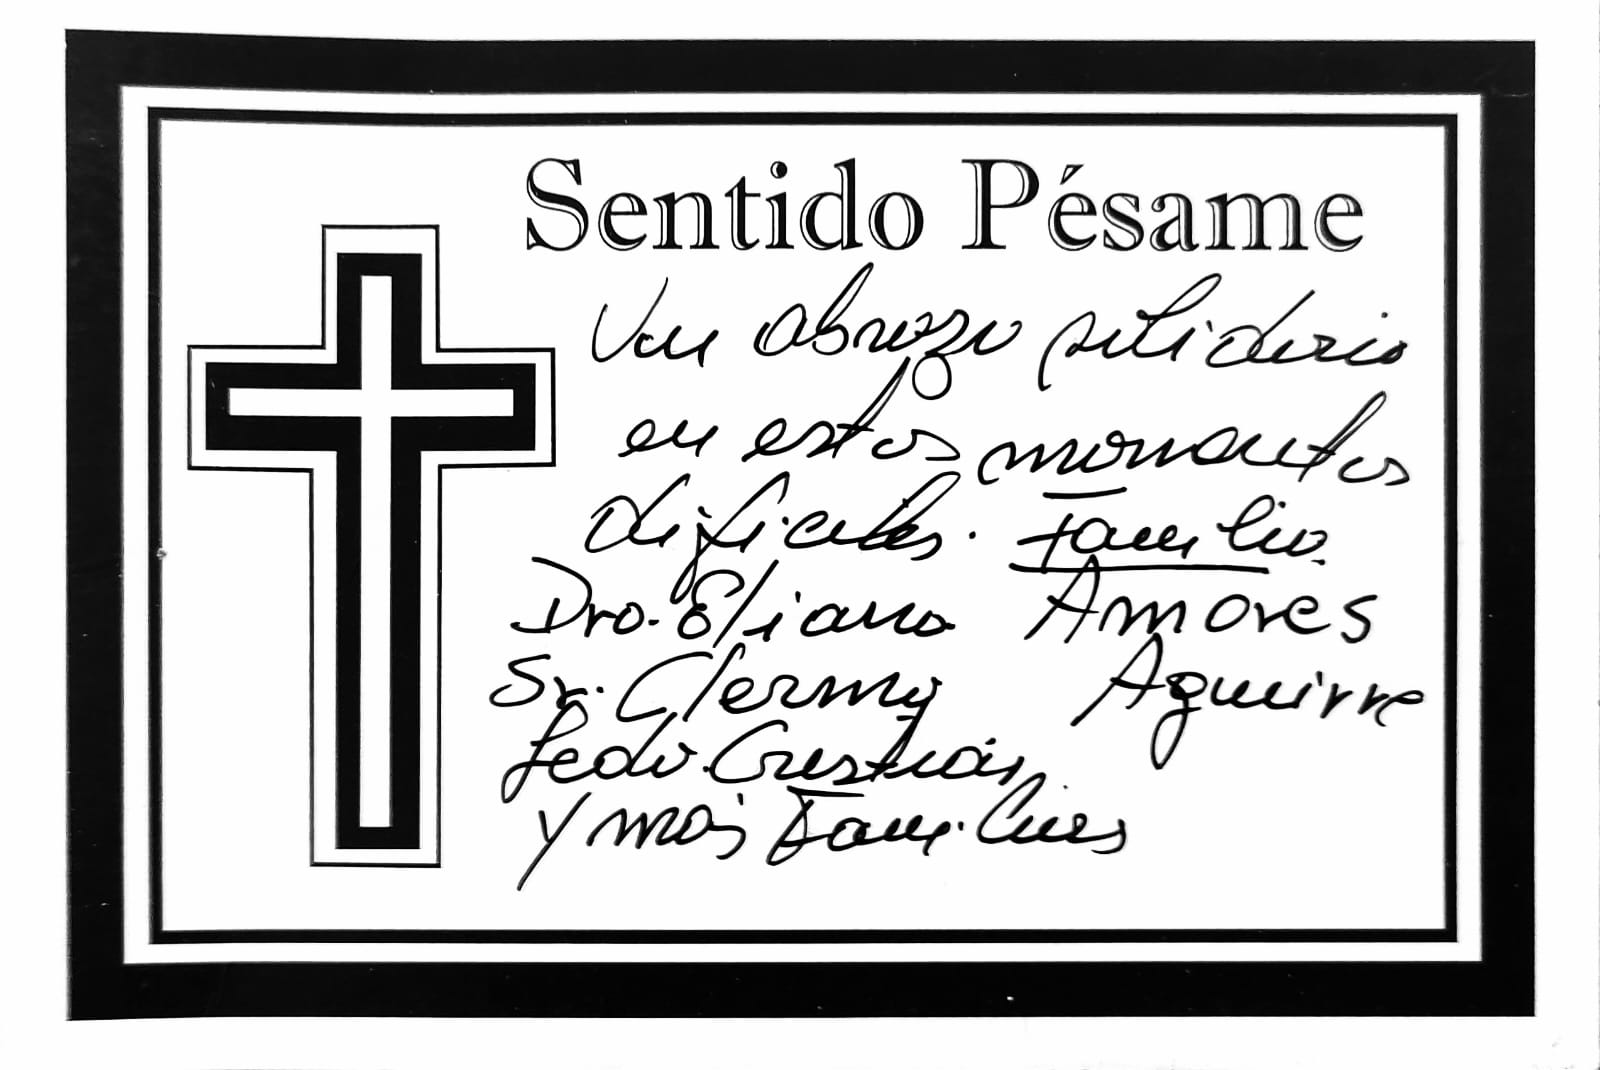 Sentido Pésame
Un abrazo solidario
en estos momentos
dificiles. Familia
Dra. Eliana Amores
Sr. Clermy Aguirre
Lcdo. Cristian
y más Familiares